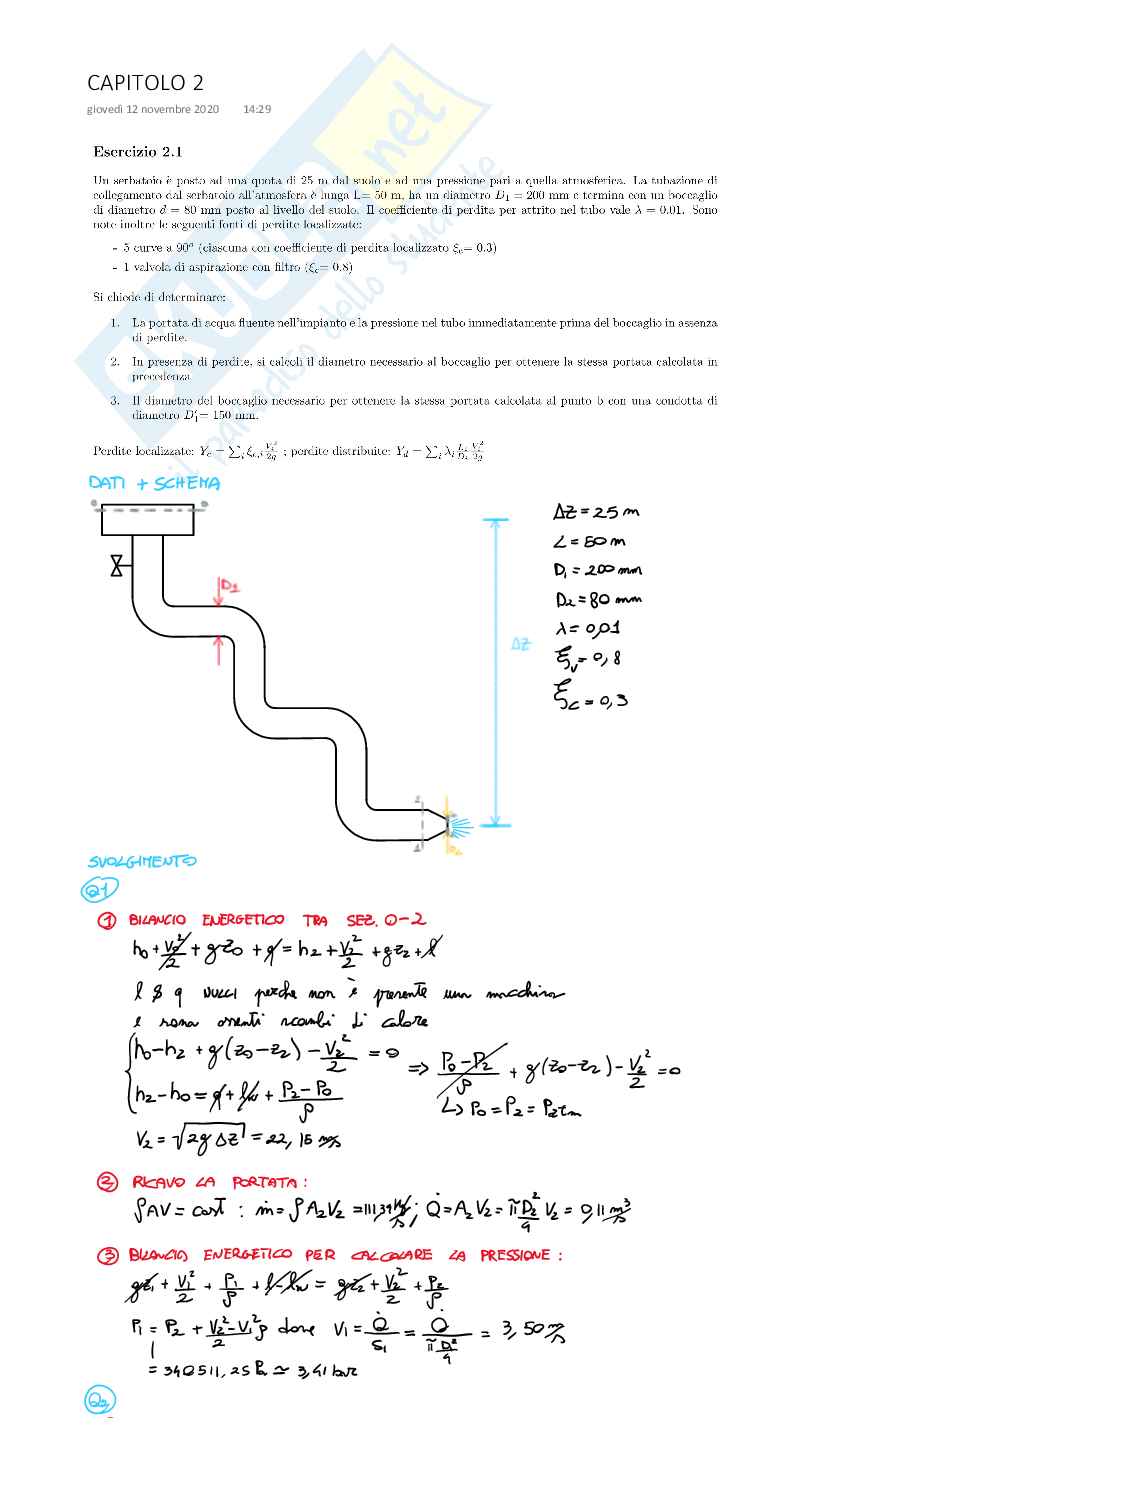 CAPITOLO 2
giovedì 12 novembre 2020 14:29
Esercizio 2.1
Un serbatoio è posto ad una quota di 25 m dal suolo e ad una pressione pari a quella atmosferica. La tubazione di
collegamento dal serbatoio all'atmosfera è lunga L= 50 m, ha un diametro D₁ = 200 mm e termina con un boccaglio
di diametro d = 80 mm posto al livello del suolo. Il coefficiente di perdita per attrito nel tubo vale λ = 0.01. Sono
note inoltre le seguenti fonti di perdite localizzate:
- 5 curve a 90° (ciascuna con coefficiente di perdita localizzato ξc= 0.3)
- 1 valvola di aspirazione con filtro (ξc= 0.8)
Si chiede di determinare:
1. La portata di acqua fluente nell'impianto e la pressione nel tubo immediatamente prima del boccaglio in assenza
di perdite.
2. In presenza di perdite, si calcoli il diametro necessario al boccaglio per ottenere la stessa portata calcolata in
precedenza
3. Il diametro del boccaglio necessario per ottenere la stessa portata calcolata al punto b con una condotta di
diametro D₁'= 150 mm.
Perdite localizzate: Yc = ∑i ξc,i Vi²/2g ; perdite distribuite: Yd = ∑i λi Li/Di Vi²/2g
il paradiso dello studente
.net
DATI + SCHEMA
ΔZ = 25 m
L = 50 m
D₁ = 200 mm
D₂ = 80 mm
λ = 0,01
ξv = 0,8
ξc = 0,3
D1
ΔZ
SVOLGIMENTO
Q1
① BILANCIO ENERGETICO TRA SEZ. 0-2
h₀ + V₀²/2 + gz₀ + q = h₂ + V₂²/2 + gz₂ + l
l & q NULLI perche non è presente una macchina
e sono assenti scambi di calore
h₀-h₂ + g(z₀-z₂) - V₂²/2 = 0 ⇒ P₀-P₂/ρ + g(z₀-z₂) - V₂²/2 = 0
h₂-h₀ = q + lw + P₂-P₀/ρ
↳ P₀ = P₂ = Patm
V₂ = √2gΔZ = 22,15 m/s
② RICAVO LA PORTATA:
ρAV = cost : ṁ = ρA₂V₂ = 111,34 kg/s ; Q̇ = A₂V₂ = πD₂²/4 V₂ = 0,11 m³/s
③ BILANCIO ENERGETICO PER CALCOLARE LA PRESSIONE:
gz₁ + V₁²/2 + P₁/ρ + l - lw = gz₂ + V₂²/2 + P₂/ρ
P₁ = P₂ + V₂²-V₁²/2 ρ dove V₁ = Q̇/S₁ = Q̇/πD₁²/4 = 3,50 m/s
= 340511,25 Pa ≃ 3,41 bar
Q2